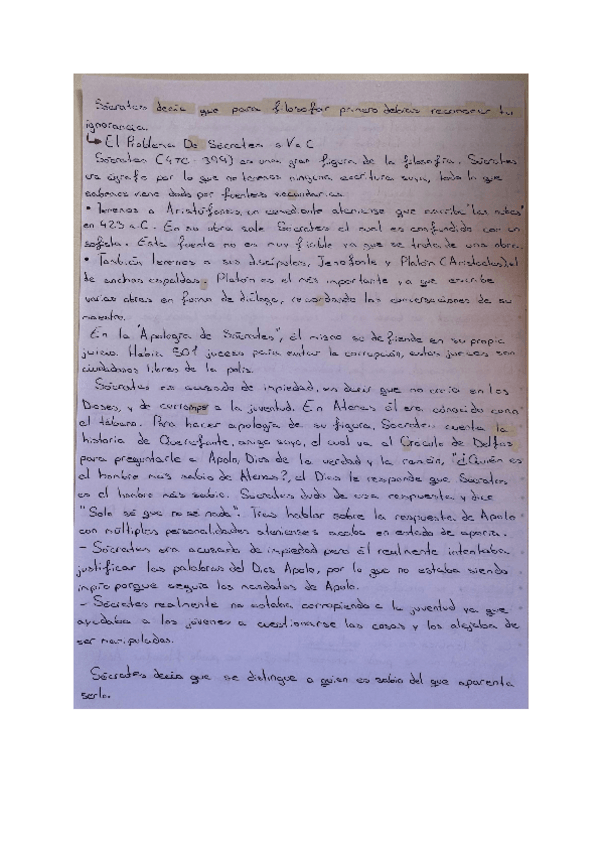 Sócrates decía que para filosofar primero debías reconocer tu
ignorancia.
↳ El Problema De Sócrates s.V a.C
Sócrates (470 - 399) es una gran figura de la filosofía. Sócrates
era ágrafo por lo que no tenemos ninguna escritura suya, todo lo que
sabemos viene dado por fuentes secundarias.
• Tenemos a Aristófanes, un comediante ateniense que escribe "las nubes"
en 423 a.C. En su obra sale Sócrates el cual es confundido con un
sofista. Esta fuente no es muy fiable ya que se trata de una obra.
• También tenemos a sus discípulos, Jenofonte y Platón (Aristocles) el
de anchas espaldas. Platón es el más importante ya que escribe
varias obras en forma de diálogo, recordando las conversaciones de su
maestro.
En la "Apología de Sócrates", él mismo se defiende en su propio
juicio. Había 501 jueces para evitar la corrupción, estos jueces son
ciudadanos libres de la polis.
Sócrates es acusado de impiedad, es decir que no creía en los
Dioses, y de corromper a la juventud. En Atenas él era conocido como
el tábano. Para hacer apología de su figura, Sócrates cuenta la
historia de Querefonte, amigo suyo, el cual va al Oráculo de Delfos
para preguntarle a Apolo, Dios de la verdad y la razón, "¿Quién es
el hombre más sabio de Atenas?, el Dios le responde que Sócrates
es el hombre más sabio. Sócrates duda de esa respuesta y dice
"Solo sé que no sé nada". Tras hablar sobre la respuesta de Apolo
con múltiples personalidades atenienses acaba en estado de aporía.
- Sócrates era acusado de impiedad pero él realmente intentaba
justificar las palabras del Dios Apolo, por lo que no estaba siendo
impío porque seguía los mandatos de Apolo.
- Sócrates realmente no estaba corrompiendo a la juventud ya que
ayudaba a los jóvenes a cuestionarse las cosas y los alejaba de
ser manipulados.
Sócrates decía que se distingue a quien es sabio del que aparenta
serlo.